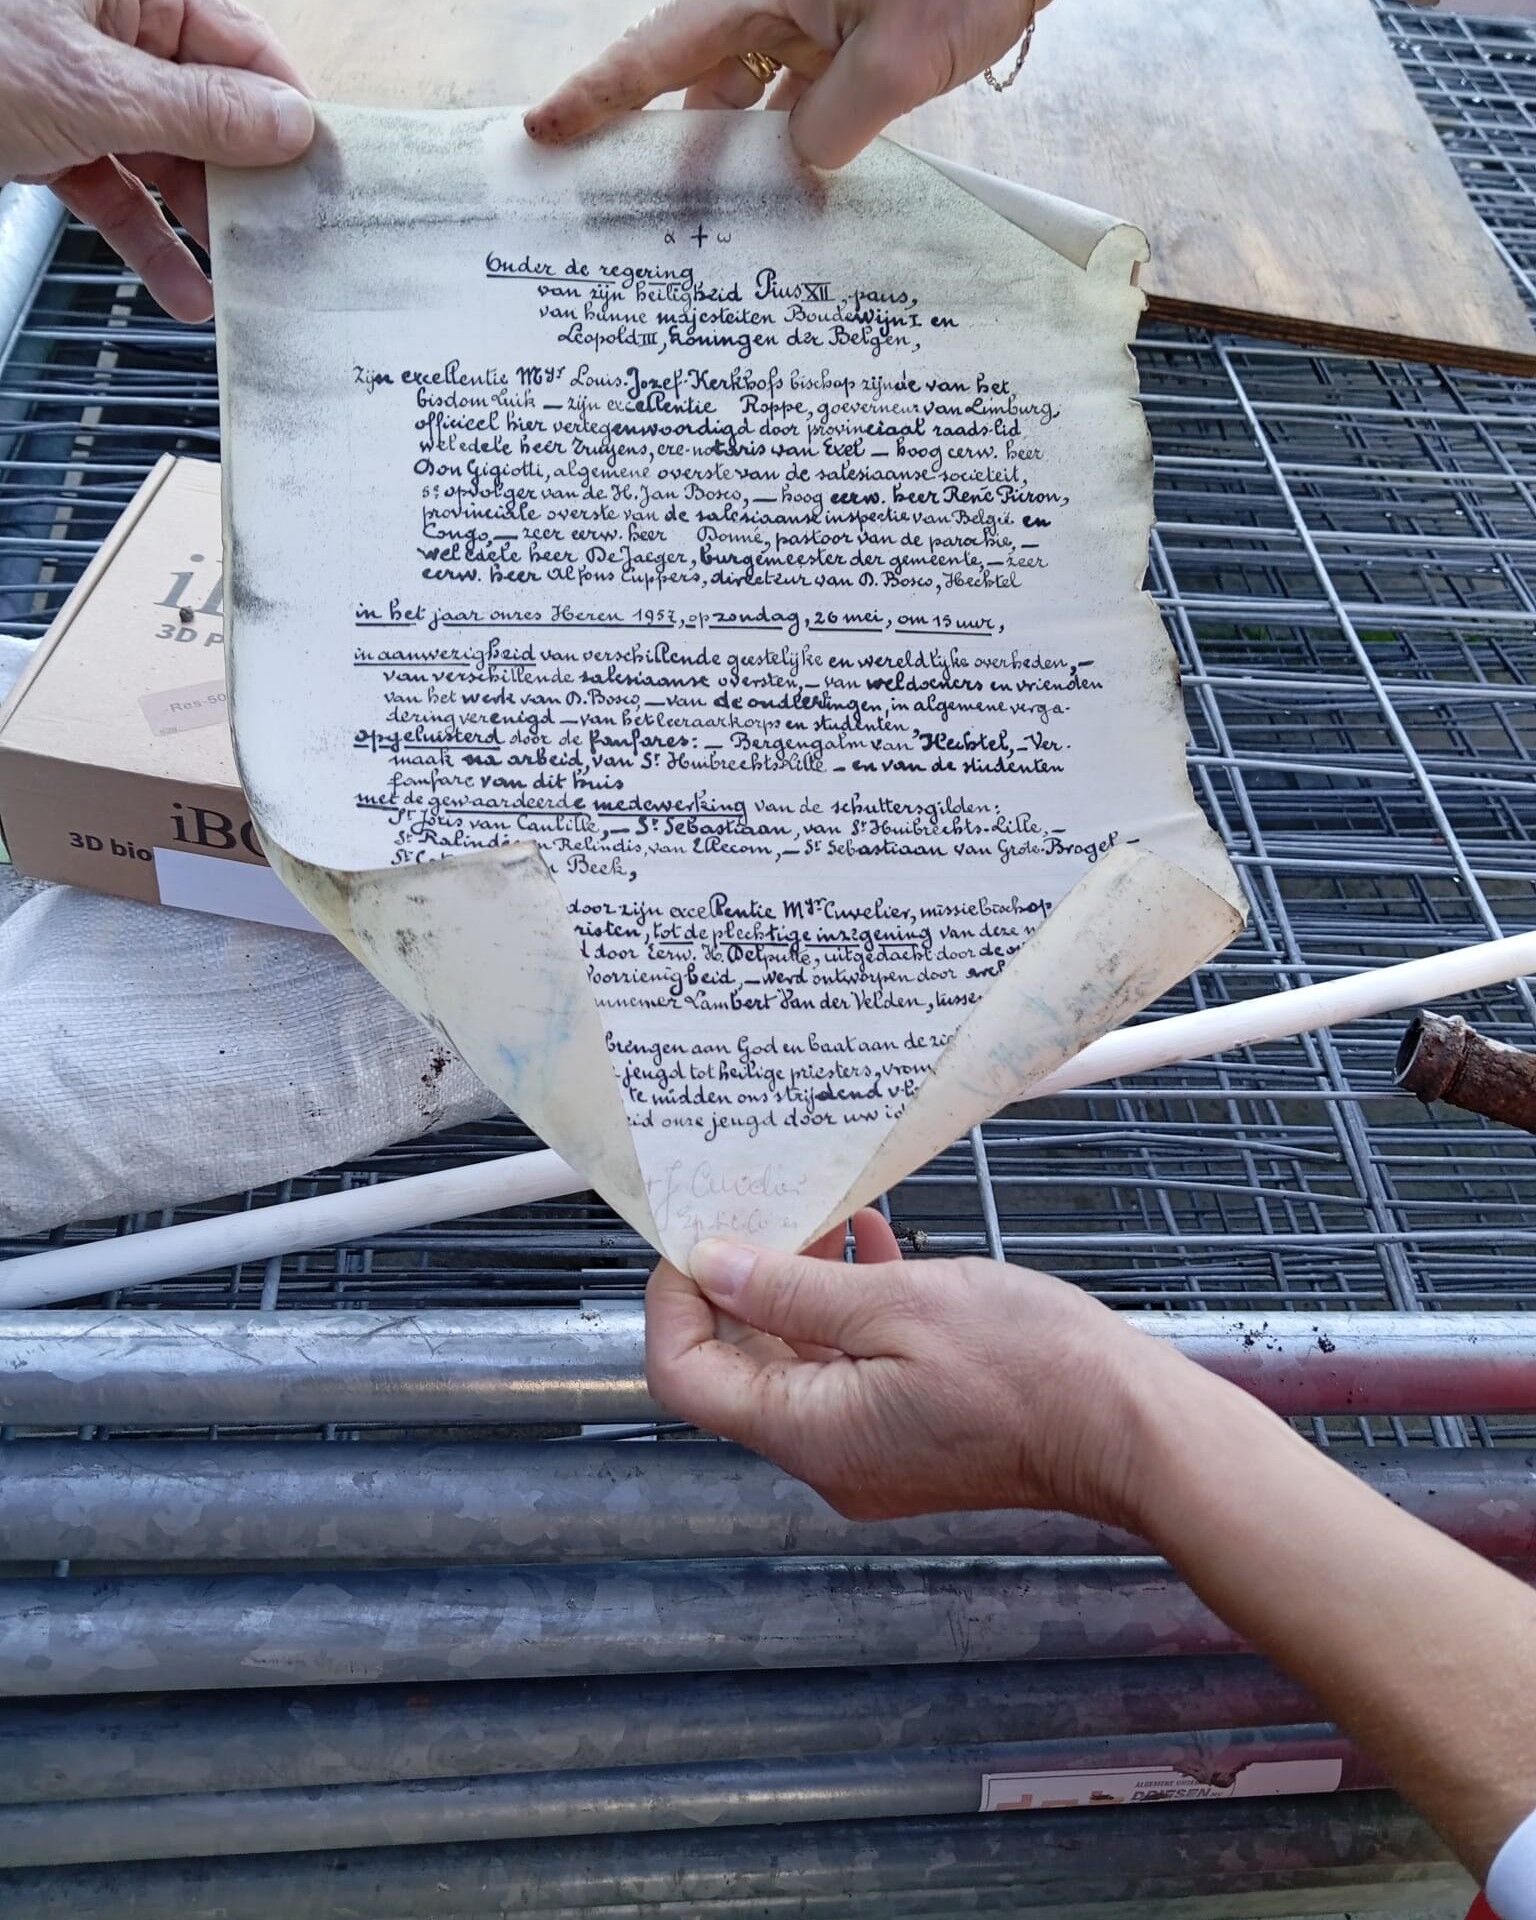 α + ω
Onder de regering
van zijn heiligheid Pius XII, paus,
van hunne majesteiten Boudewijn I en
Leopold III, Koningen der Belgen,
Zijn excellentie Mgr Louis-Jozef Kerkhofs bisschop zijnde van het
bisdom Luik — zijn excellentie Roppe, goeverneur van Limburg,
officieel hier vertegenwoordigd door provinciaal raads-lid
weledele heer Truyens, ere-notaris van Exel — hoog eerw. heer
Don Gigiotti, algemene overste van de salesiaanse societeit,
5e opvolger van de H. Jan Bosco, — hoog eerw. heer René Picron,
provinciale overste van de salesiaanse inspectie van België en
Congo, — zeer eerw. heer Donné, pastoor van de parochie, —
weledele heer De Jaeger, burgemeester der gemeente, — zeer
eerw. heer Alfons Cuppers, directeur van D. Bosco, Hechtel
in het jaar onzes Heren 1957, op zondag, 26 mei, om 15 uur,
in aanwezigheid van verschillende geestelijke en wereldlijke overheden, —
van verschillende salesiaanse oversten, — van weldoeners en vrienden
van het werk van D. Bosco, — van de oudleerlingen, in algemene verga-
dering verenigd — van het leeraarkorps en studenten,
opgeluisterd door de fanfares: — Bergengalm van Hechtel, — Ver-
maak na arbeid, van St Huibrechts Lille — en van de studenten
fanfare van dit huis
met de gewaardeerde medewerking van de schuttersgilden:
St Joris van Caulille, — St Sebastiaan, van St Huibrechts-Lille, —
St Ralindis en Relindis, van Ellecom, — St Sebastiaan van Grote-Brogel —
Beek,
door zijn excellentie Mgr Cuvelier, missiebischop
tot de plechtige inzegening van deze
door Eerw. H. Delputte, uitgedacht door
Voorzienigheid, — werd ontworpen door
Lambert Van der Velden,
brengen aan God en baat aan de
jeugd tot heilige priesters,
te midden ons strijdend
onze jeugd door uw
3D
Res-50
iBO
3D bio
ALGEMENE
DRIESEN